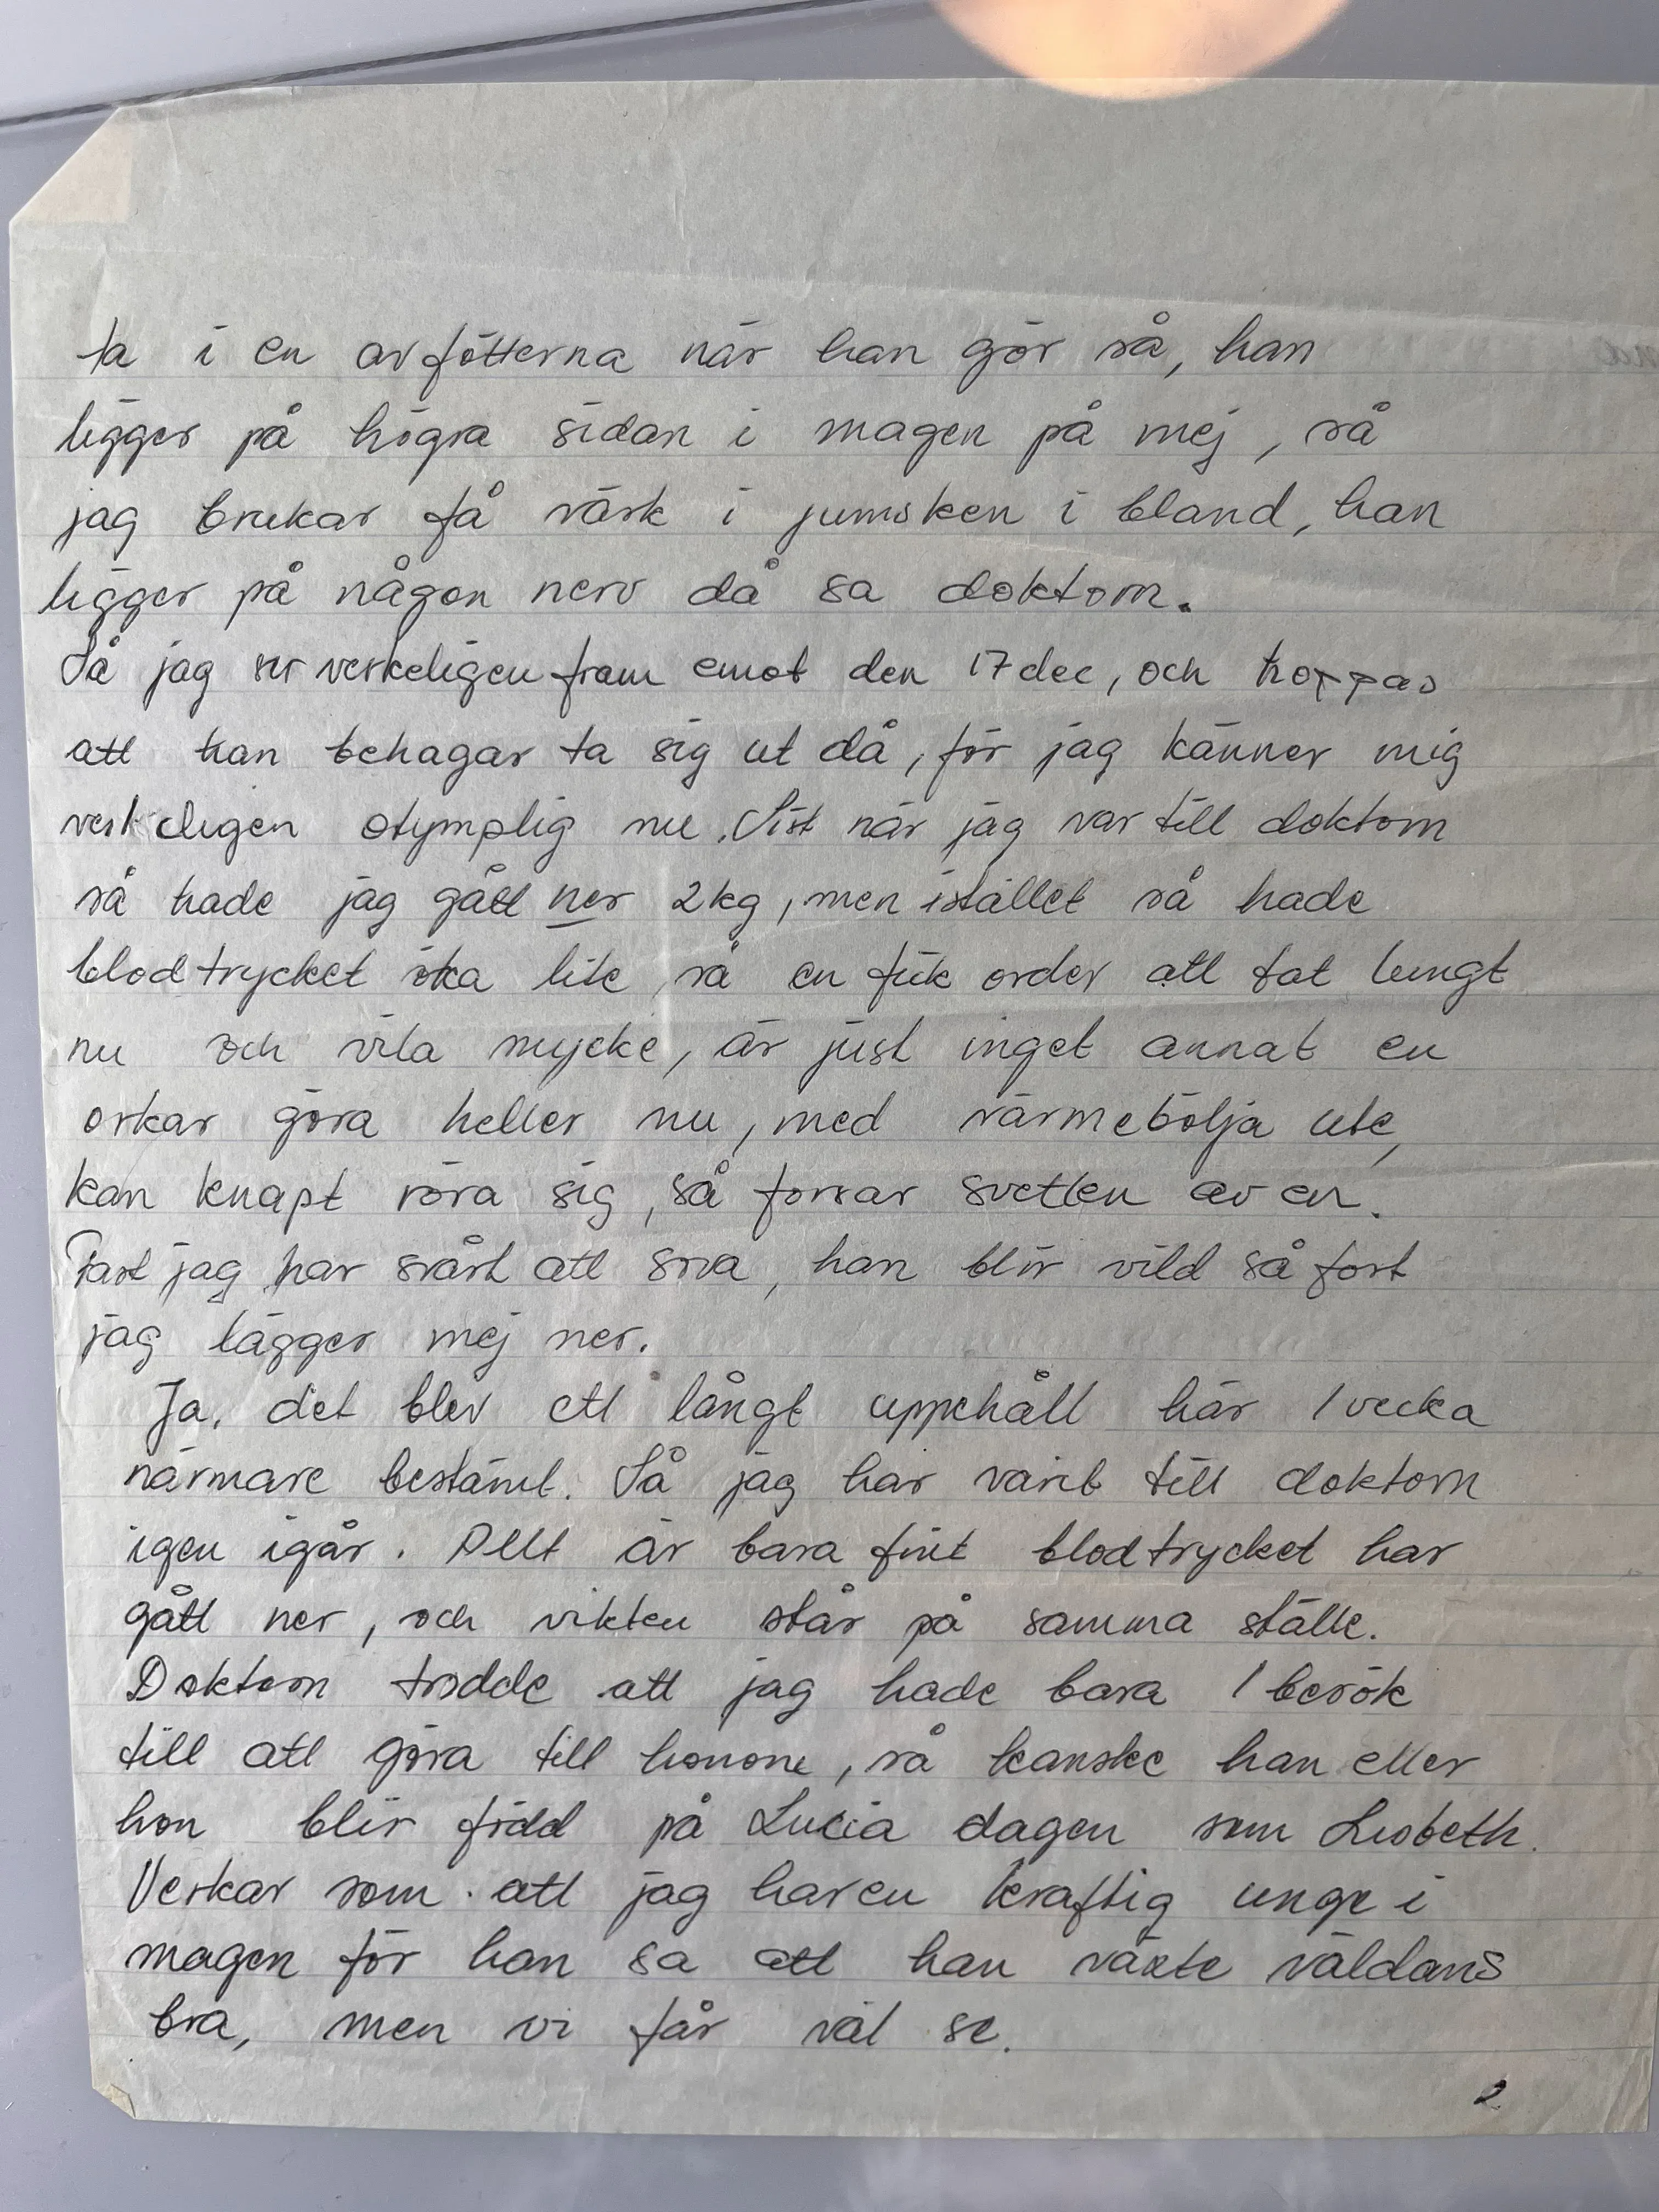 ta i en av fötterna när han gör så, han
ligger på högra sidan i magen på mej, så
jag brukar få värk i jumsken i bland, han
ligger på någon nerv då sa doktorn.
Så jag ser verkeligen fram emot den 17 dec, och hoppas
att han behagar ta sig ut då, för jag känner mig
verkeligen otymplig nu. Sist när jag var till doktorn
så hade jag gått ner 2 kg, men istället så hade
blodtrycket öka lite, så en fick order att tat lungt
nu och vila mycke, är just inget annat en
orkar göra heller nu, med värmebölja ute,
kan knapt röra sig, så forsar svetten av en.
Fast jag har svårt att sova, han blir vild så fort
jag lägger mej ner.
Ja, det blev ett långt uppehåll här 1 vecka
närmare bestämt. Så jag har varit till doktorn
igen igår. Allt är bara fint blodtrycket har
gått ner, och vikten står på samma ställe.
Doktorn trodde att jag hade bara 1 besök
till att göra till honom, så kanske han eller
hon blir född på Lucia dagen som Lisbeth.
Verkar som att jag har en kraftig unge i
magen för han sa att han växte väldans
bra, men vi får väl se.
2